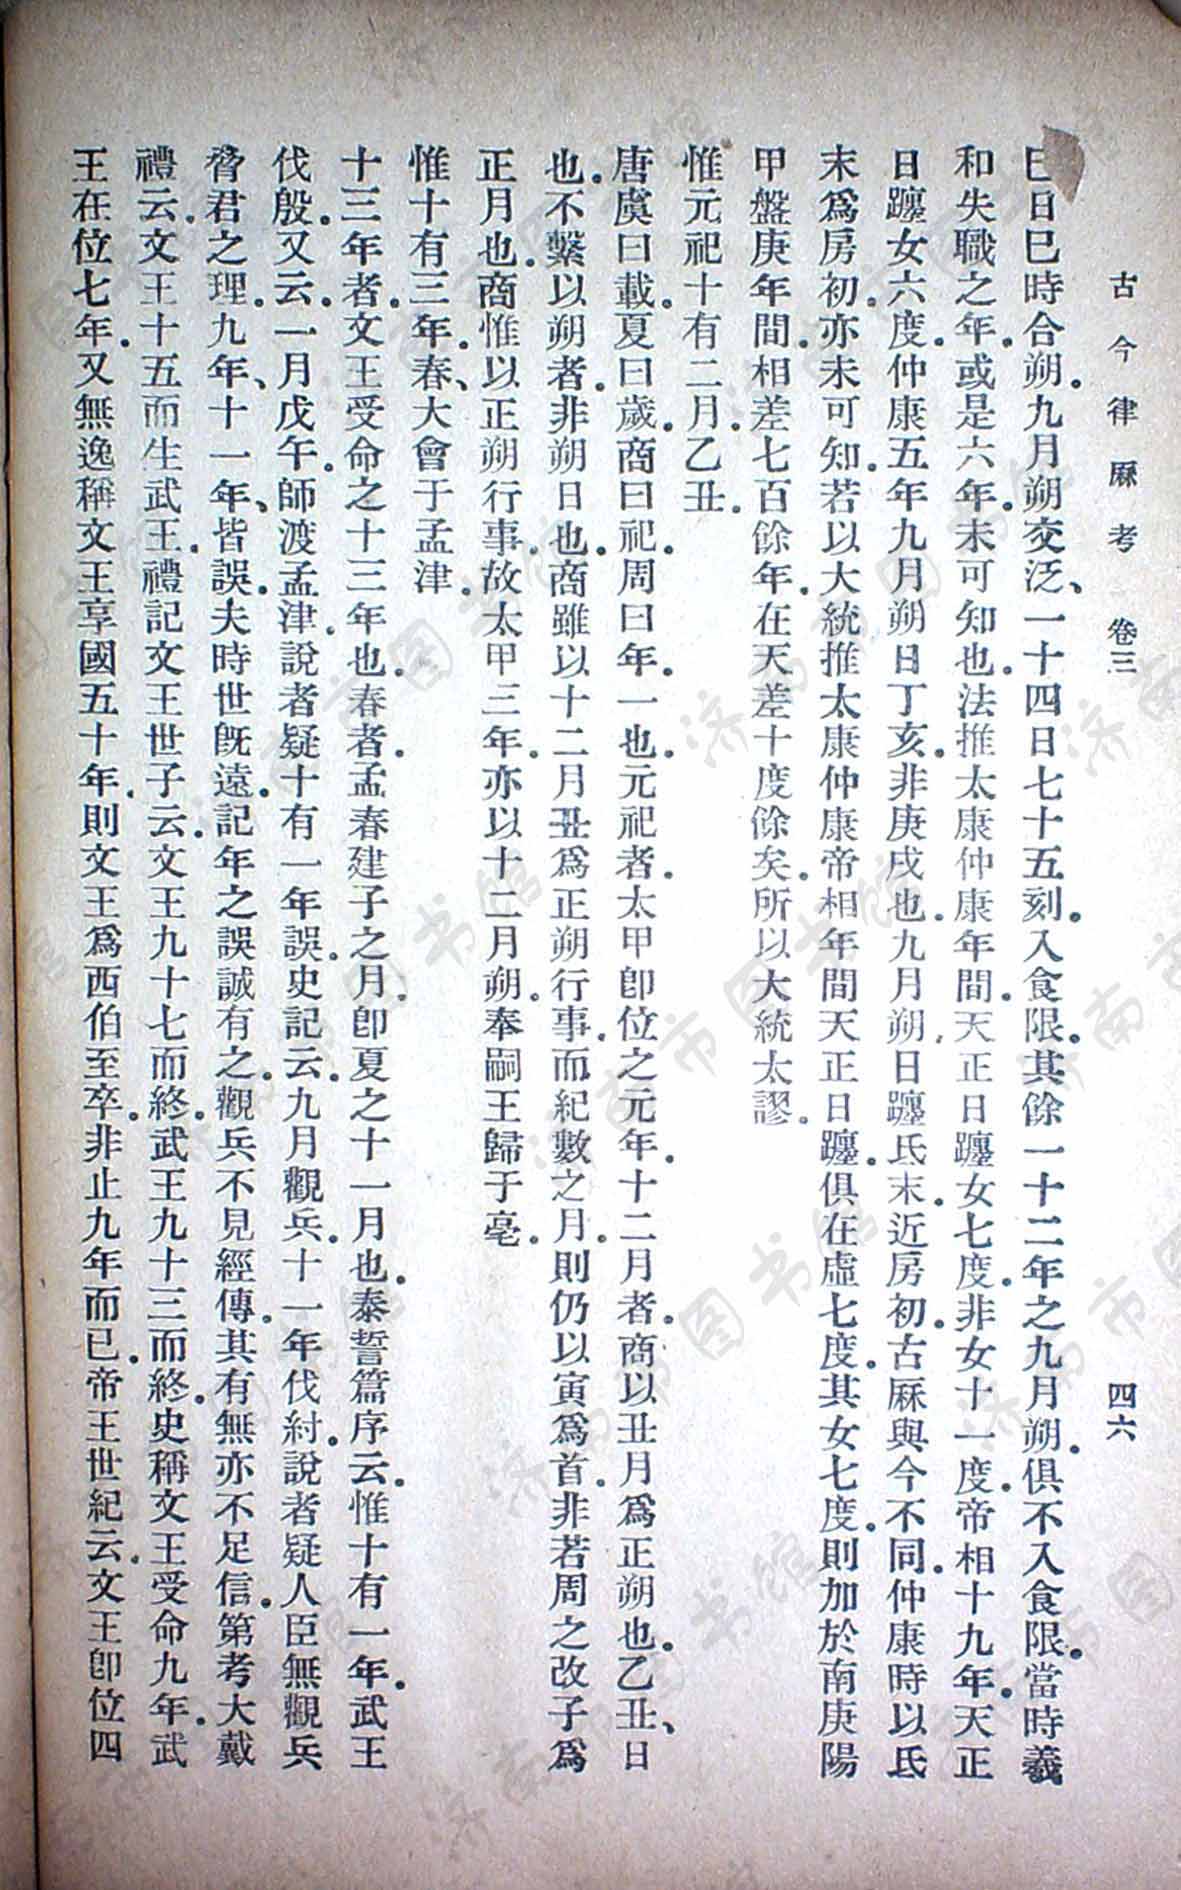 古今律厤考　卷三　四六
巳日巳時合朔。九月朔交泛、一十四日七十五刻。入食限。其餘一十二年之九月朔。俱不入食限。當時羲
和失職之年。或是六年。未可知也。法推太康仲康年間。天正日躔女七度。非女十一度。帝相十九年。天正
日躔女六度。仲康五年九月朔日丁亥。非庚戌也。九月朔日躔氐末。近房初。古厤與今不同。仲康時以氐
末爲房初。亦未可知。若以大統推太康仲康帝相年間天正日躔。俱在虛七度。其女七度。則加於南庚陽
甲盤庚年間。相差七百餘年。在天差十度餘矣。所以大統太謬。
惟元祀十有二月。乙丑。
唐虞曰載。夏曰歲。商曰祀。周曰年。一也。元祀者。太甲卽位之元年。十二月者。商以丑月爲正朔也。乙丑、日
也。不繫以朔者。非朔日也。商雖以十二月丑爲正朔行事。而紀數之月。則仍以寅爲首。非若周之改子爲
正月也。商惟以正朔行事。故太甲三年。亦以十二月朔。奉嗣王歸于亳。
惟十有三年。春、大會于孟津。
十三年者。文王受命之十三年也。春者。孟春建子之月。卽夏之十一月也。泰誓篇序云。惟十有一年。武王
伐殷。又云。一月戊午。師渡孟津。說者疑十有一年誤。史記云。九月觀兵。十一年伐紂。說者疑人臣無觀兵
脅君之理。九年、十一年、皆誤。夫時世旣遠。記年之誤誠有之。觀兵不見經傳。其有無亦不足信。第考大戴
禮云。文王十五而生武王。禮記文王世子云。文王九十七而終。武王九十三而終。史稱文王受命九年。武
王在位七年。又無逸稱文王享國五十年。則文王爲西伯至卒。非止九年而已。帝王世紀云。文王卽位四